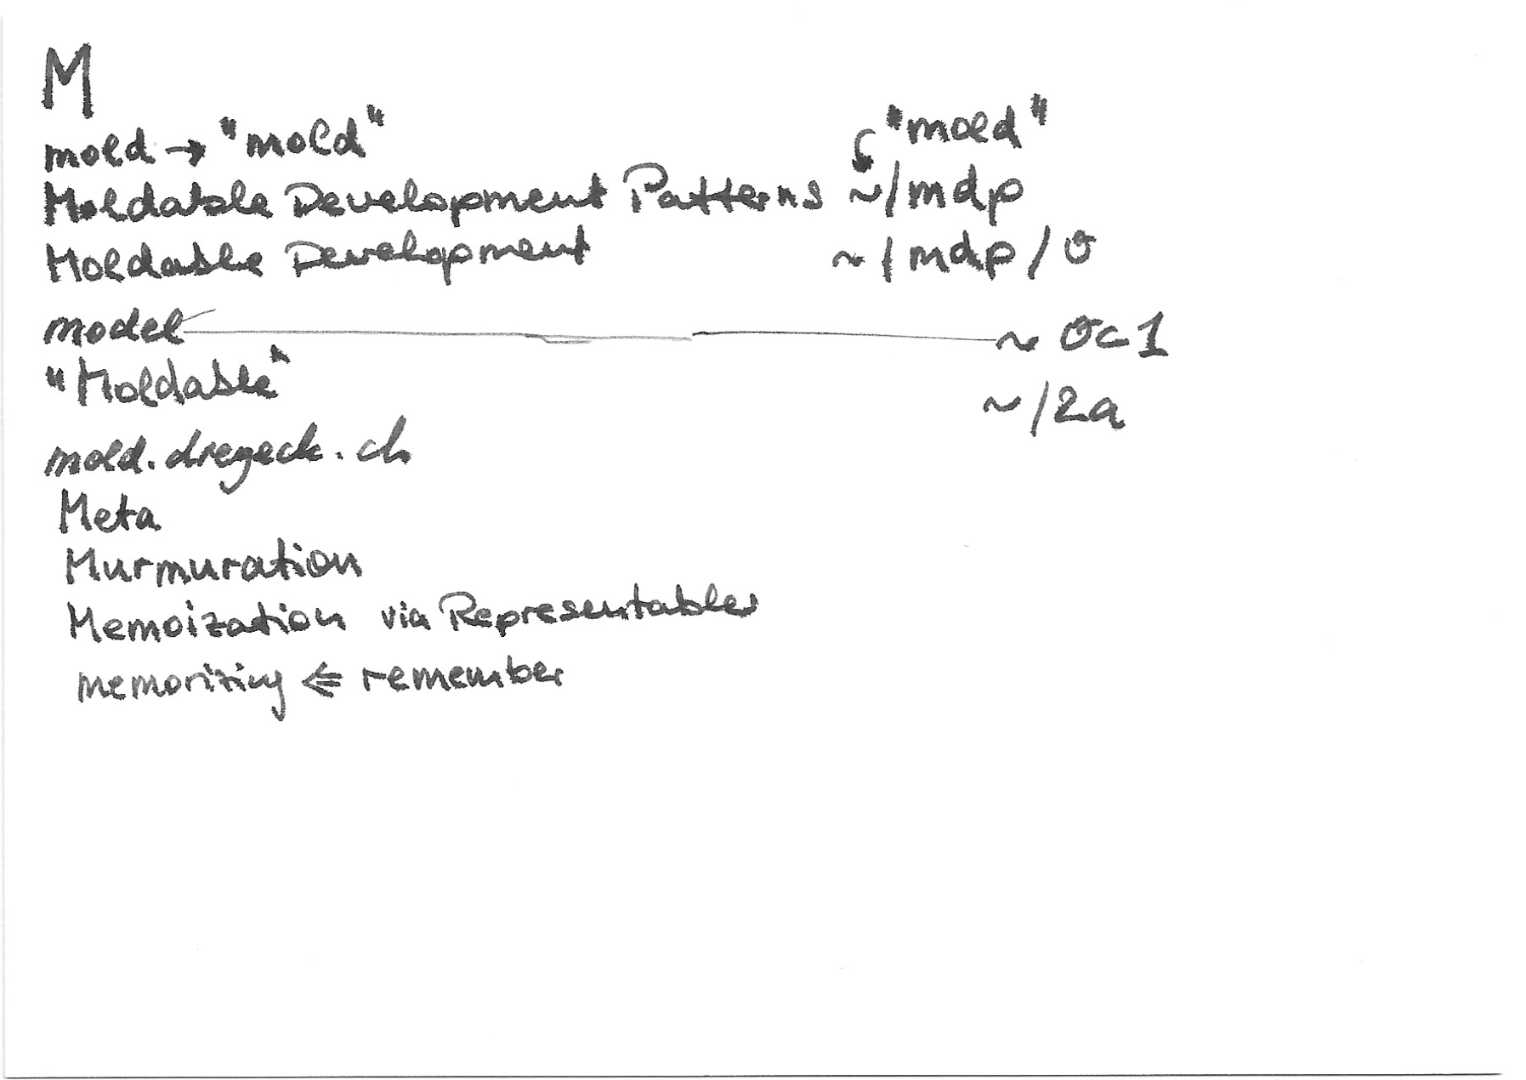 M
mold → "mold"
"mold"
Moldable Development Patterns ~/mdp
Moldable Development ~/mdp/0
model ~ 0c1
"Moldable" ~/2a
mold.dreyeck.ch
Meta
Murmuration
Memoization via Representables
memorizing ⇐ remember